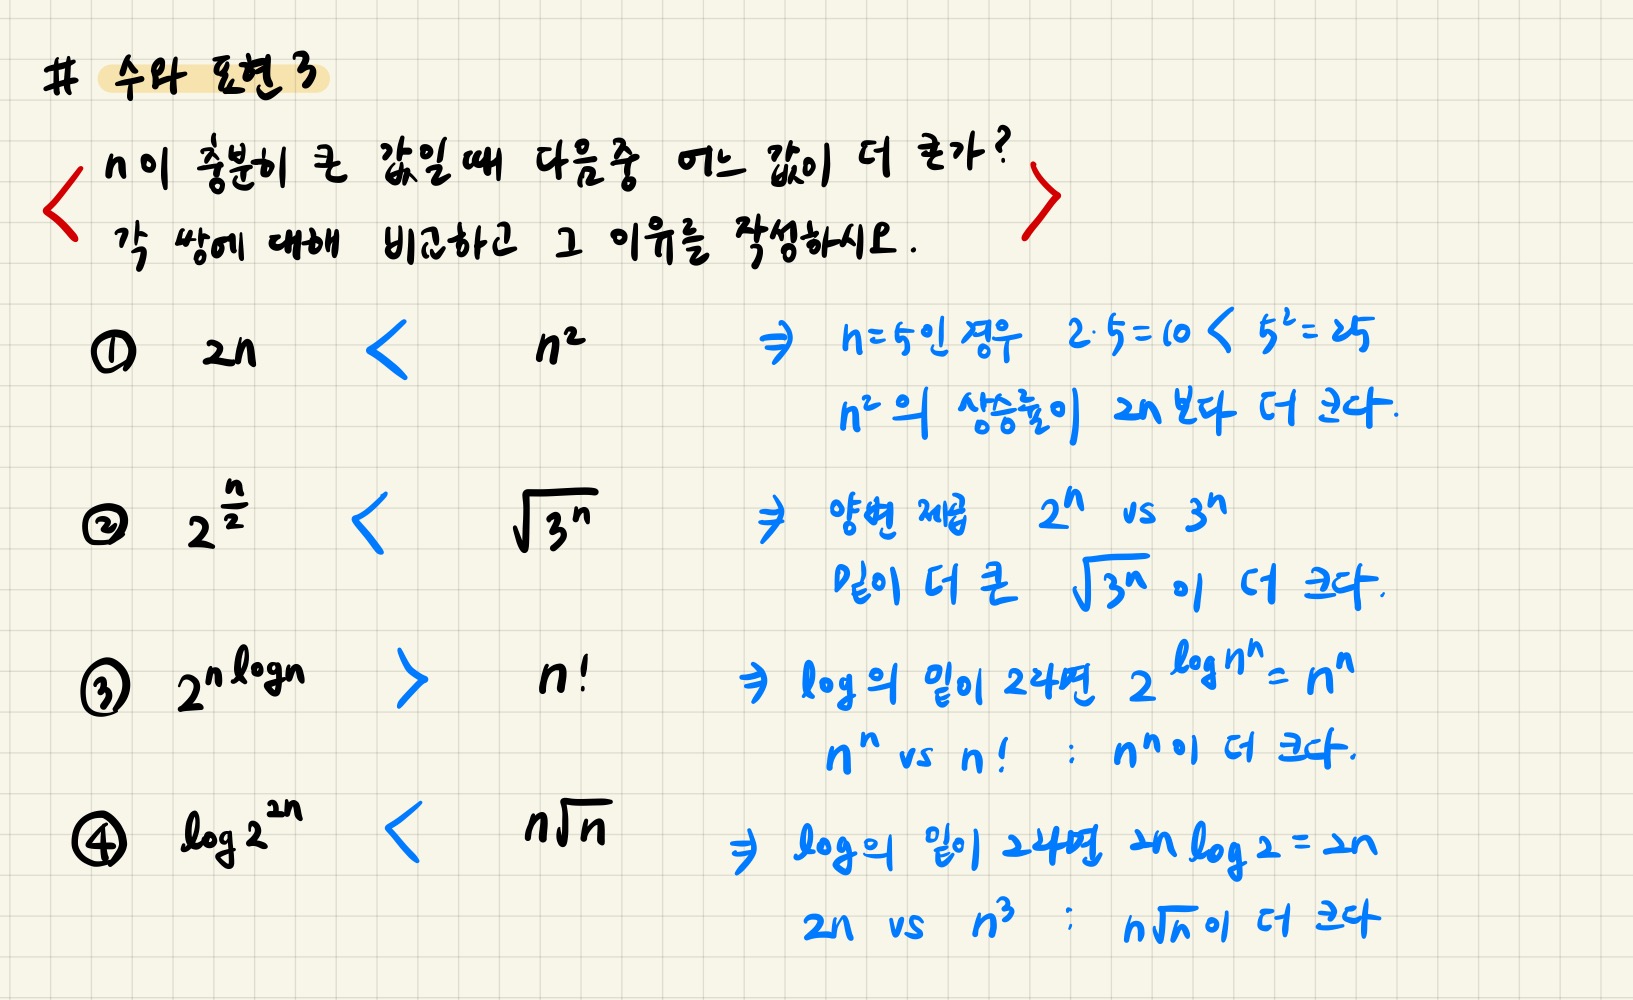 # 수와 표현 3
< n이 충분히 큰 값일 때 다음중 어느 값이 더 큰가? >
각 쌍에 대해 비교하고 그 이유를 작성하시오.
① 2n < n² ⇒ n=5인 경우 2·5=10 < 5²=25
n²의 상승률이 2n보다 더 크다.
② 2^(n/2) < √(3ⁿ) ⇒ 양변 제곱 2ⁿ vs 3ⁿ
밑이 더 큰 √(3ⁿ)이 더 크다.
③ 2^(n log n) > n! ⇒ log의 밑이 2라면 2^(log nⁿ) = nⁿ
nⁿ vs n! : nⁿ이 더 크다.
④ log 2^(2n) < n√n ⇒ log의 밑이 2라면 2n log 2 = 2n
2n vs n³ : n√n이 더 크다